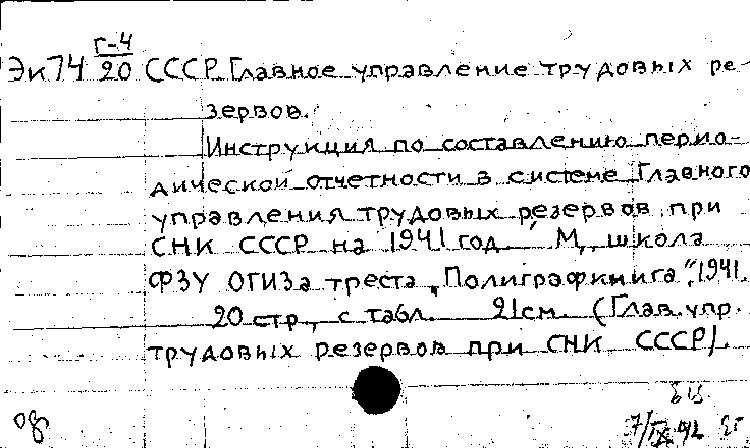 Г-4
Эк74 20 СССР. Главное управление трудовых ре-
зервов.
Инструкция по составлению перио-
дической отчетности в системе Главного
управления трудовых резервов при
СНК СССР на 1941 год. М., школа
ФЗУ ОГИЗа треста „Полиграфкнига", 1941.
20 стр., с табл. 21 см. (Глав. упр.
трудовых резервов при СНК СССР).
7/IX 42